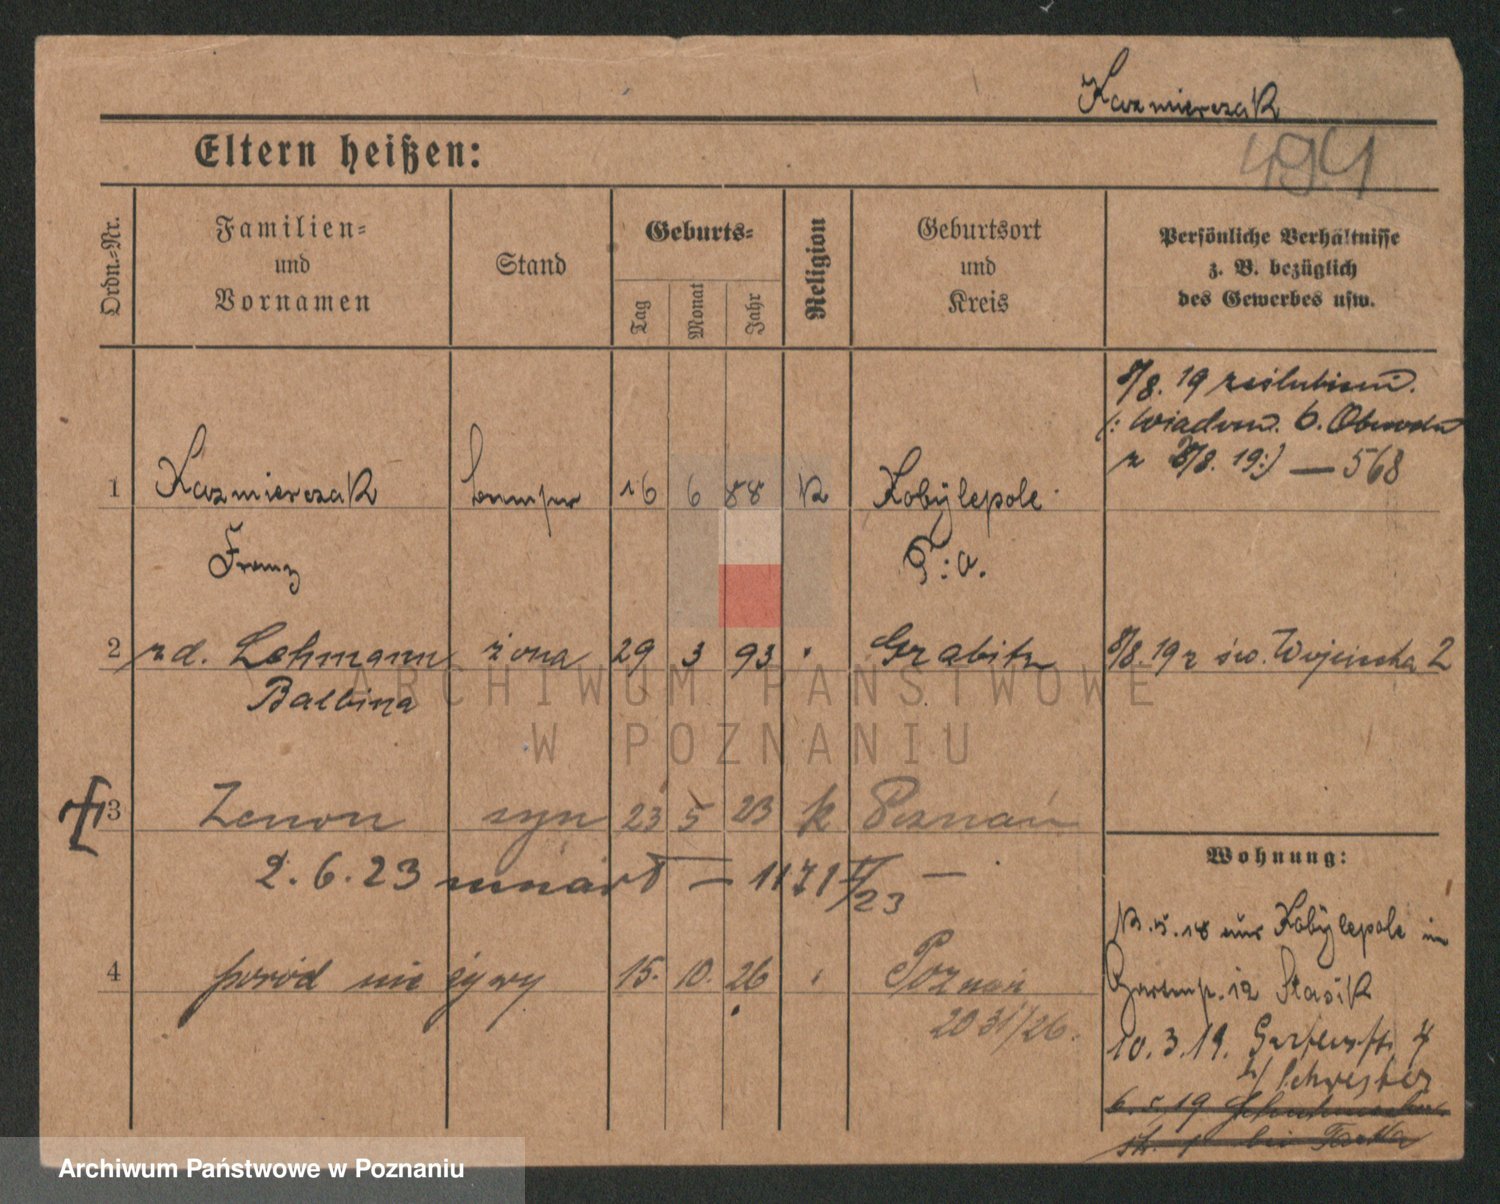 Kazmierczak
Eltern heißen:
494
Ordn.-Nr.
Familien-
und
Vornamen
Stand
Geburts-
Tag
Monat
Jahr
Religion
Geburtsort
und
Kreis
Persönliche Verhältnisse
z. B. bezüglich
des Gewerbes usw.
8/8. 19 zaślubieni.
(: Wiadom. 6. Obwodu
z 8/8. 19:) — 568
1 Kazmierczak 16 6 88 K Kobylepole
Franz P: O.
2 zd. Lehmann żona 29 3 93 " Grabitz 8/8. 19 z św. Wojciecha 2
Balbina
3 Zenon syn 23 5 23 k Poznań
2. 6. 23 umarł — 1171 /23 —
4 poród nie żywy 15. 10. 26 " Poznań
2031/26.
Wohnung:
5. 18 aus Kobylepole in
Gartenstr. 12 Stasik
10. 3. 19. Gartenstr. 4
b/ Schwester
6. 5. 19
str. 1 bei
ARCHIWUM PAŃSTWOWE
W POZNANIU
Archiwum Państwowe w Poznaniu